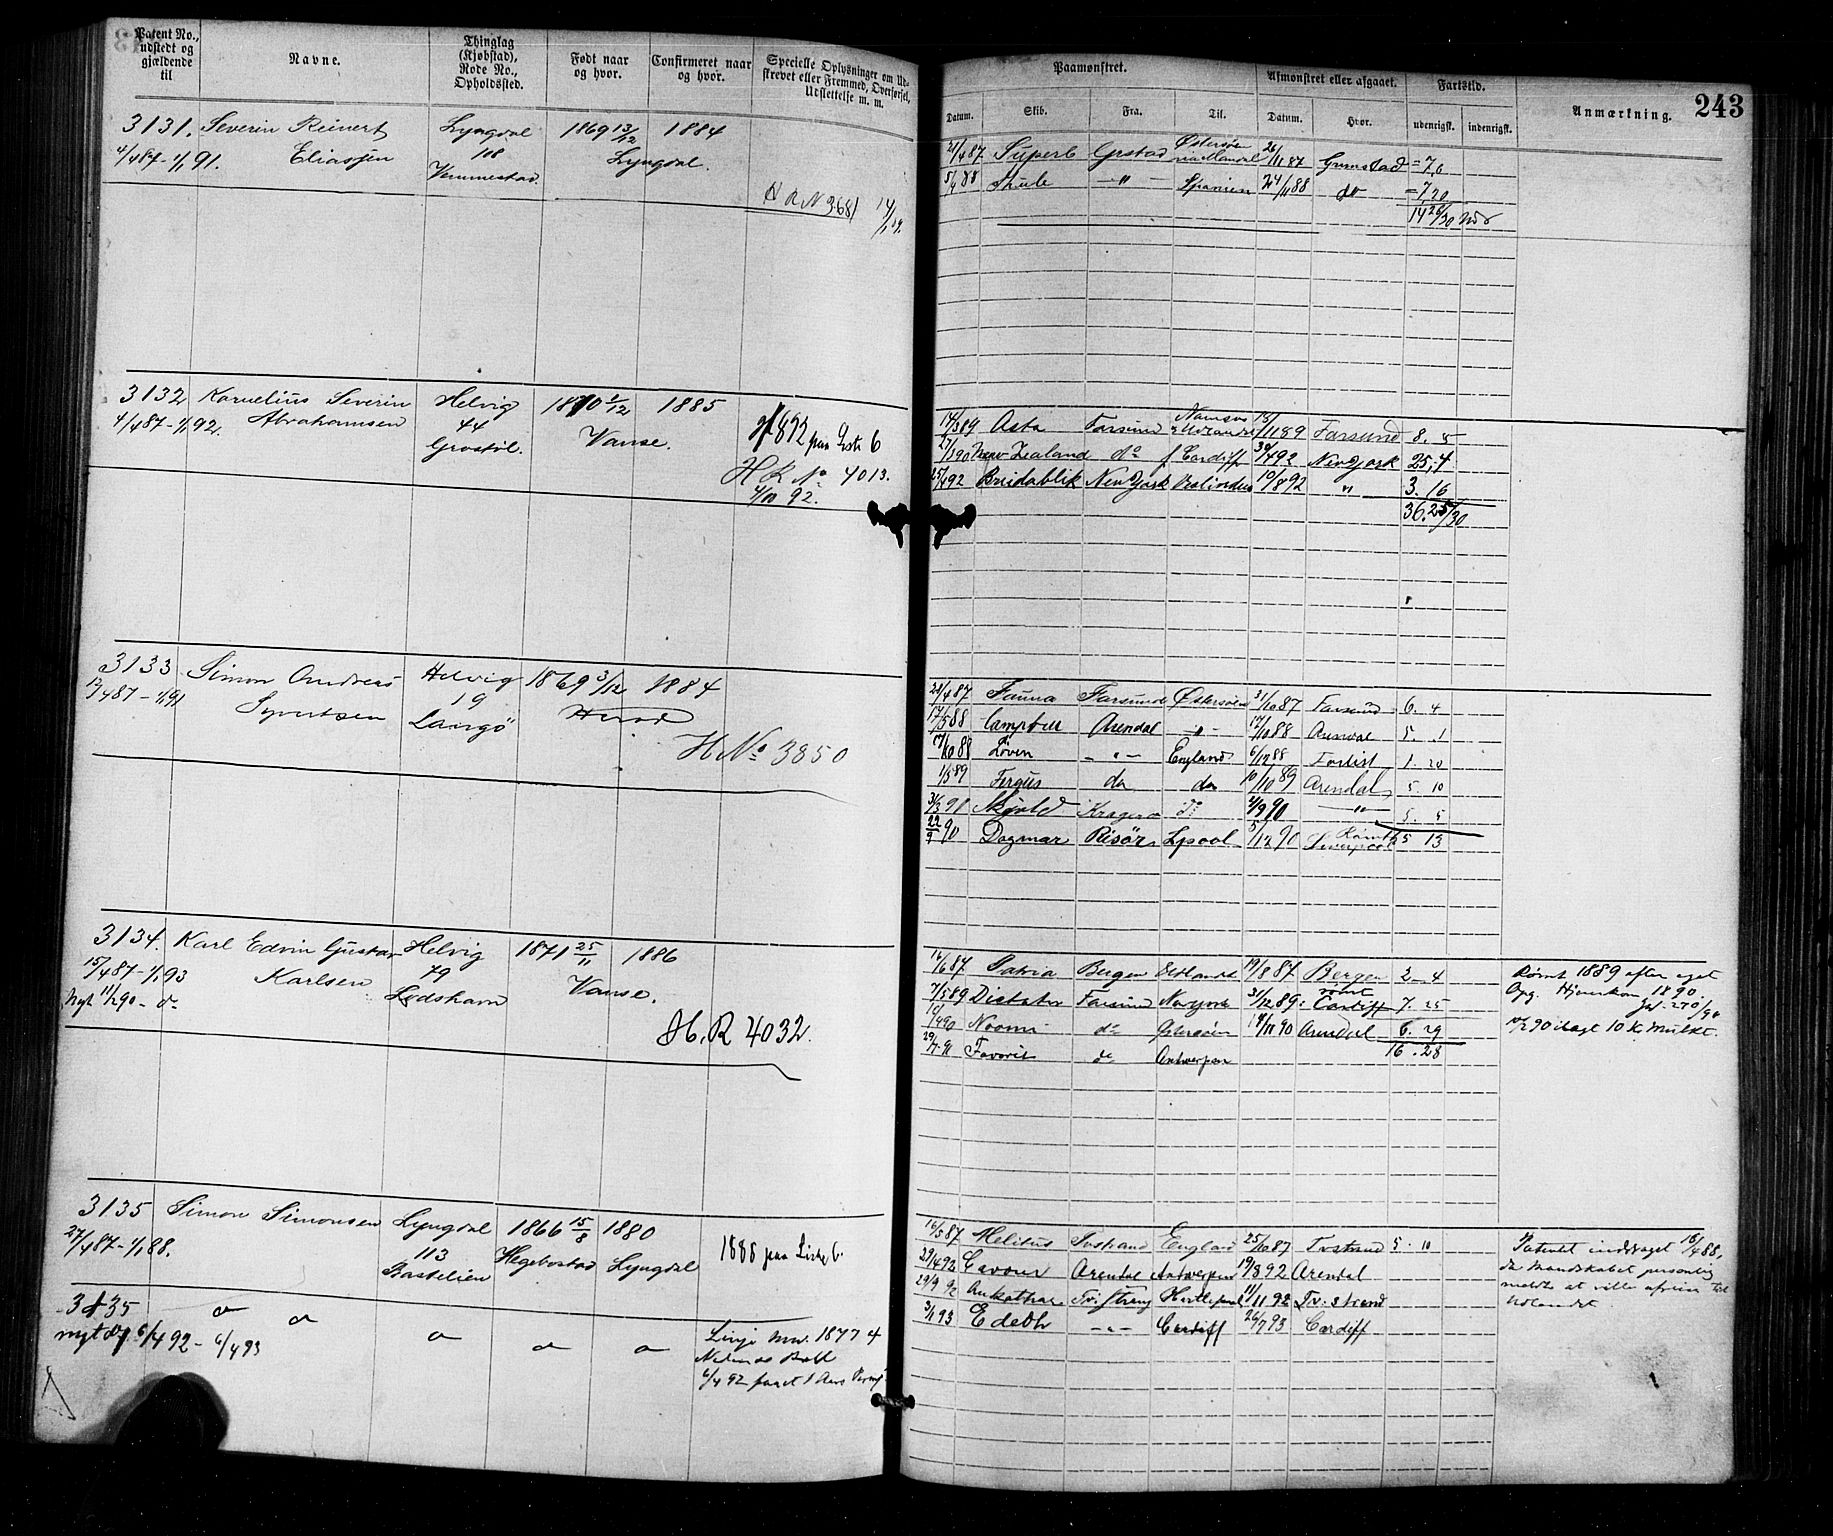 Patent No., udstedt og gjældende til
Navne.
Thinglag (Kjøbstad), Rode No., Opholdssted.
Født naar og hvor.
Confirmeret naar og hvor.
Specielle Oplysninger om Udskrevet eller Fremmed, Overførsel, Udslettelse m. m.
Paamønstret.
Afmønstret eller afgaaet.
Fartstid.
Anmærkning.
243
Datum.
Skib.
Fra.
Til.
Datum.
Hvor.
udenrigsk.
indenrigsk.
3131. Severin Reinert Lyngdal 1869 13/12 1884
4/487-1/1 91. Eliassen 108 Lyngdal.
Vemmestad.
H R N 3681
21/487 Superb Grstad Østersøen 26/1187 Grimstad = 7,6
5/488 Thule — " — Spanien 24/1188 do = 7,20
14 26/30
3132 Kornelius Severin Helvig 1870 2/12 1885
4/487-1/1 92. Abrahamsen 44 Vanse.
1892 paa Liste 6
H R No 4013.
4/10 92.
14/389 Asta Farsund 1189 Farsund 8. 5
27/190 New Zealand do f Cardiff 30/492 New York 25,4
25/492 Breidablik New York 10/892 " 3. 16
36.25/30
3133 Simon Andreas Helvig 1869 3/12 1884
12/487-1/1 91 Syvertsen 19 Herod
Langö
H No 3850
23/487 Fauna Farsund Østersøen 31/1087 Farsund 6. 4
17/588 Campbell Arendal — " — 17/1088 Arendal 5. 1
17/1088 Löven — " — England 6/1288 Farlist 1. 20
1/589 Fergus do do 10/1089 Arendal 5 10
31/390 Kragerø do 2/990 — " — 5. 5
22/9 90 Dagmar Risör Lpool 5/1290 Rømt Liverpool 5 13
3134. Karl Edvin Gustav Helvig 1871 25/11 1886
15/487-1/1 93 Karlsen 79 Vanse.
Nyt 11/290 - do Lodshavn
H. R 4032.
16/687 Patria Bergen Østlandet 19/887 Bergen 2 - 4
7/589 Dictator Farsund Newyork 31/1289: rømt Cardiff 7. 25
1/490 Noomi do Østersøen 1190 Arendal 6. 29
16. 28
29/7 91 Favorit do Antwerpen
Rømt 1889 efter eget
Opg. Hjemkom 1890
90 ilagt 10 K Mulkt.
3135 Simon Simonsen Lyngdal 1866 15/8 1880
27/487-1/1 88. 113 Hægebostad Lyngdal
Bastelien
1888 paa Liste 6.
16/587 Melitus Tvstrand England 25/1087 Tvstrand 5. 10
29/492 Cavour Arendal Antwerpen 19/892 Arendal
29/9 92 Tv:Strand Hartlepool 11/1192 Tv:strand
3/1 93 Edeth — " — Cardiff 26/793 Cardiff
Patentet inddraget 16/488,
da Mandskabet personlig
meldte at ville afreise til
Udlandet.
3135 do do do do do
nyt do 6/492 - 6/493
Linje 1877 4
6/4 92 paa et 1 Aars